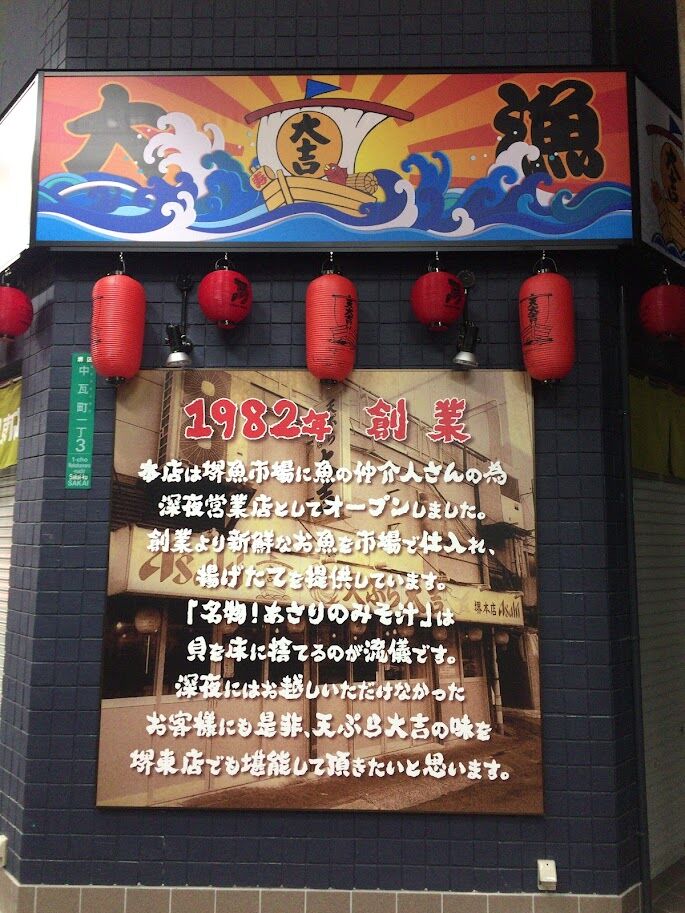 大 漁
大吉
1982年 創業
本店は堺魚市場に魚の仲介人さんの為
深夜営業店としてオープンしました。
創業より新鮮なお魚を市場で仕入れ、
揚げたてを提供しています。
「名物!あさりのみそ汁」は
貝を床に捨てるのが流儀です。
深夜にはお越しいただけなかった
お客様にも是非、天ぷら大吉の味を
堺東店でも堪能して頂きたいと思います。
堺区
中瓦町一丁
3
1-cho
Nakakawara
machi
Sakai-ku
SAKAI
天ぷら大吉
堺本店
Asahi